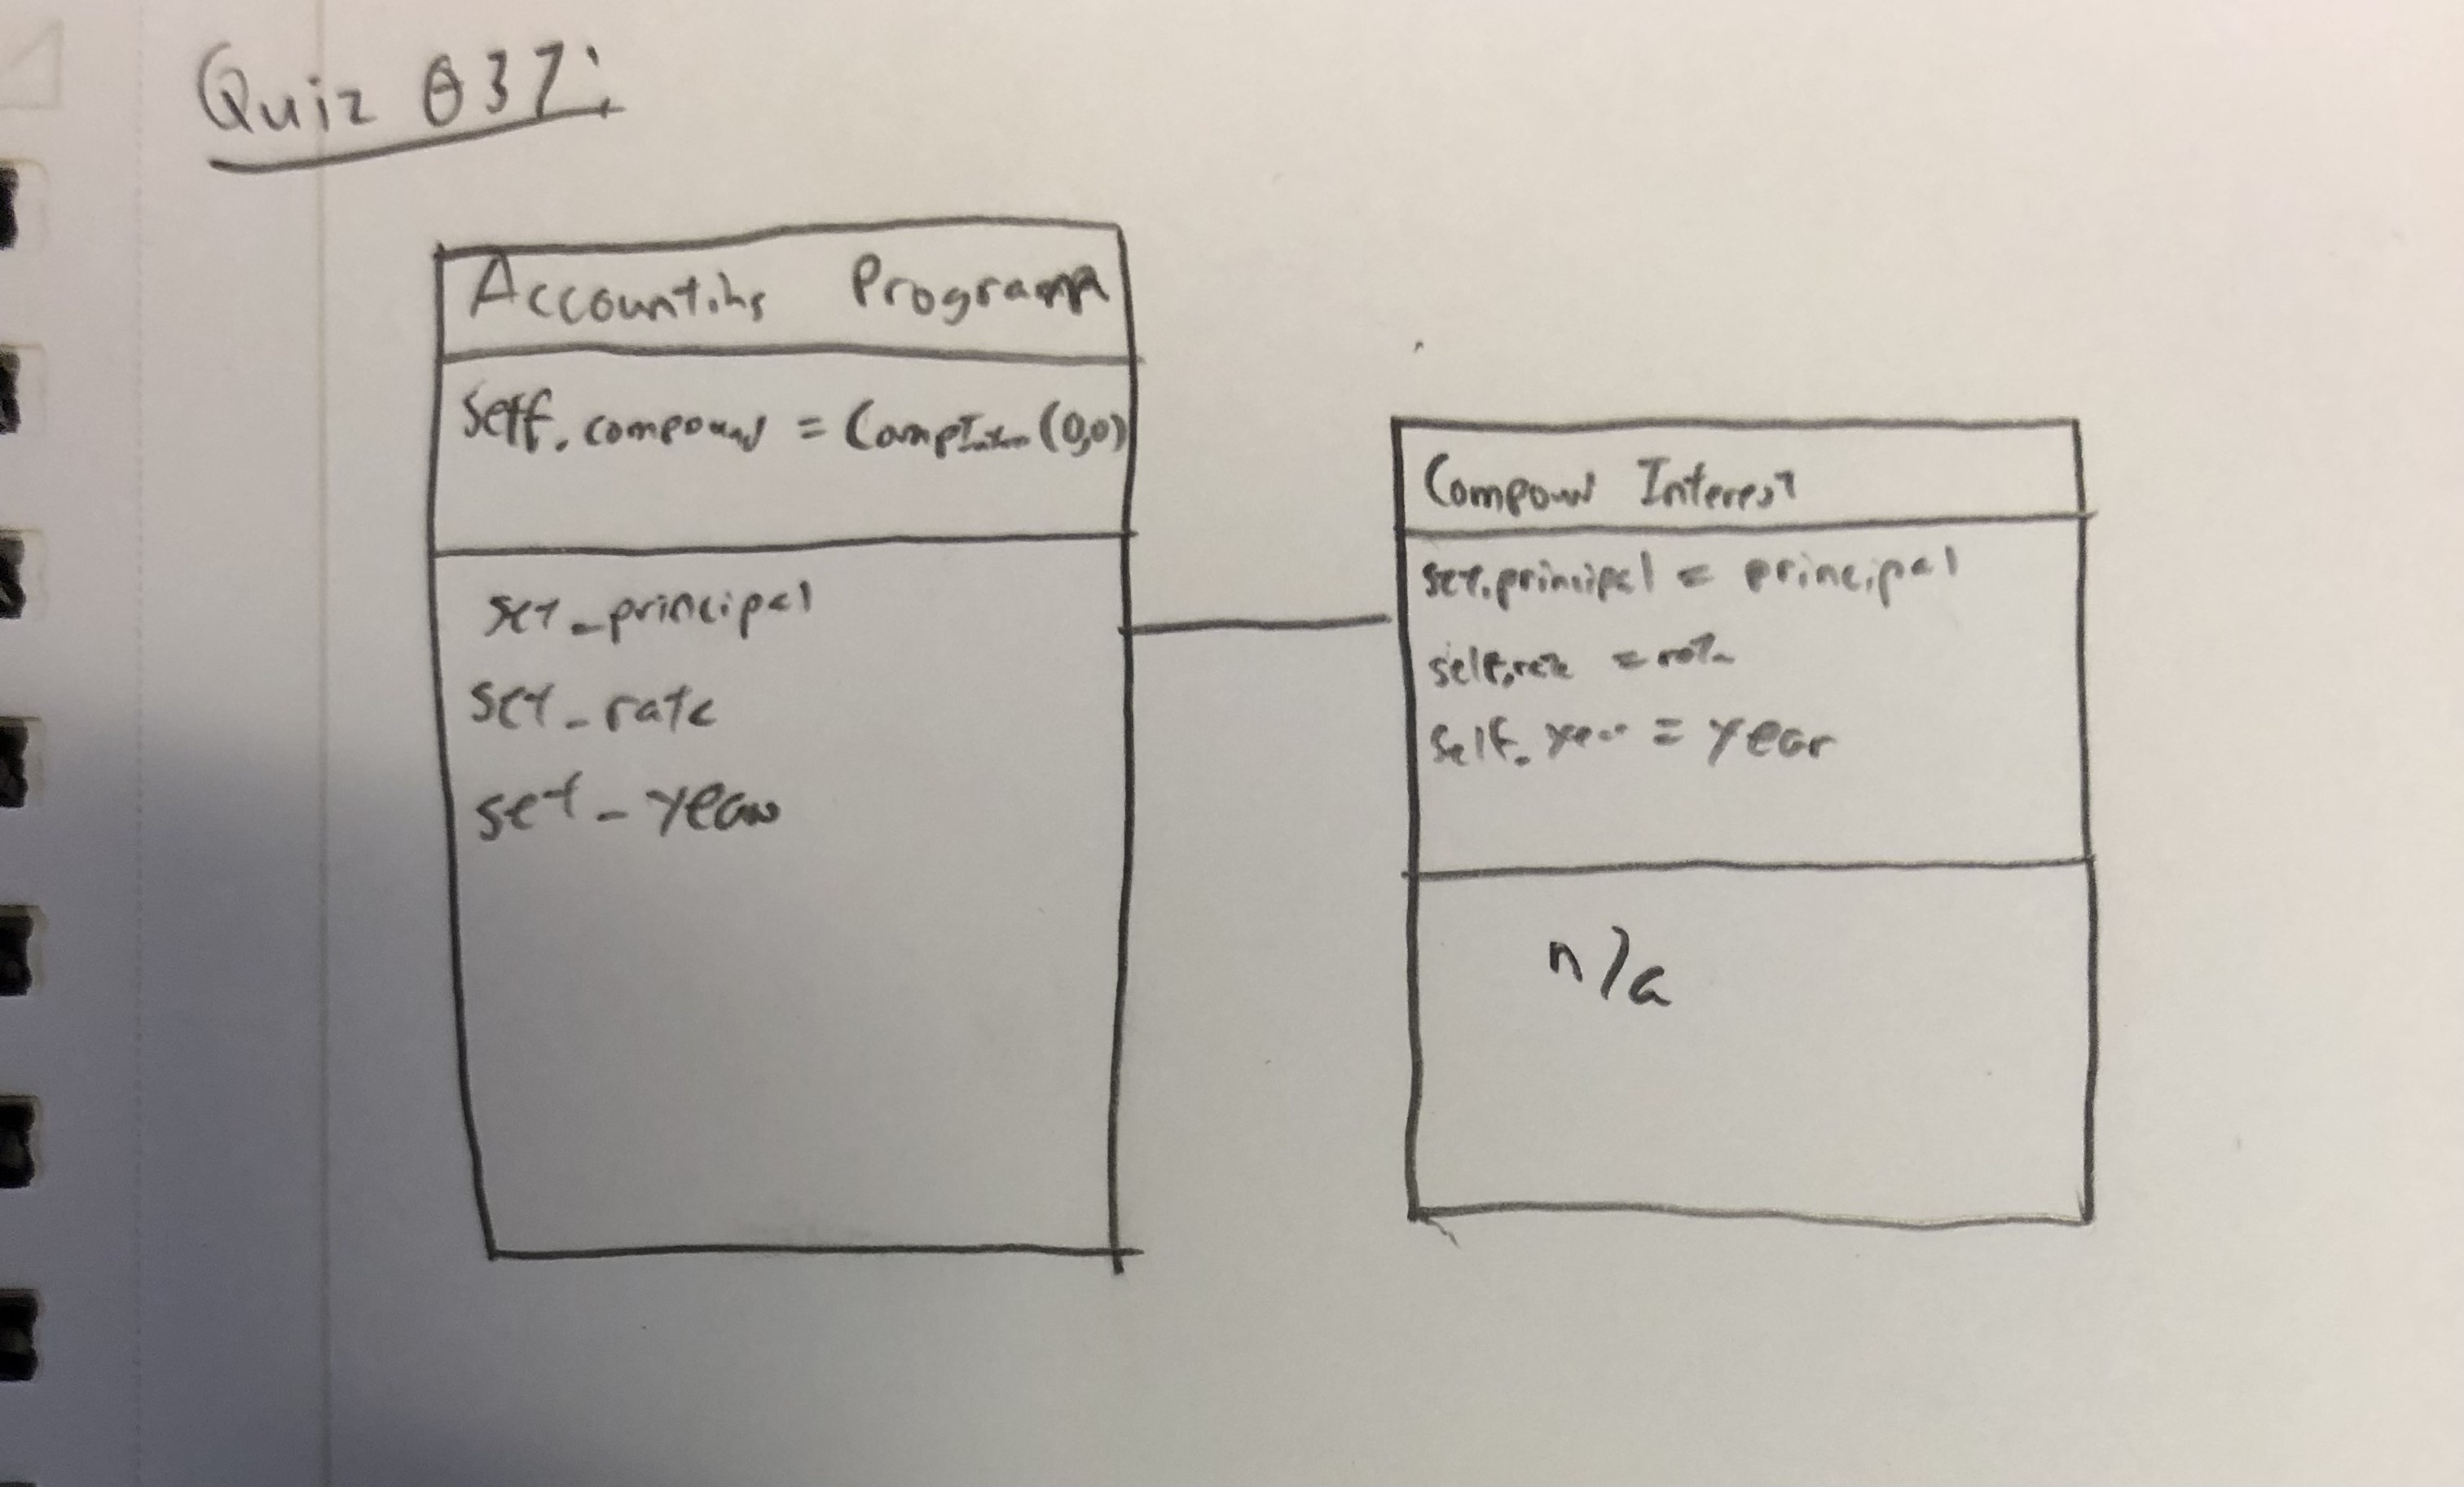 Quiz 037:
Accounting Program
self.compound = (0,0)
set_principal
set_rate
set_year
Compound Interest
self.principal = principal
self.rate = rate
self.year = year
n/a